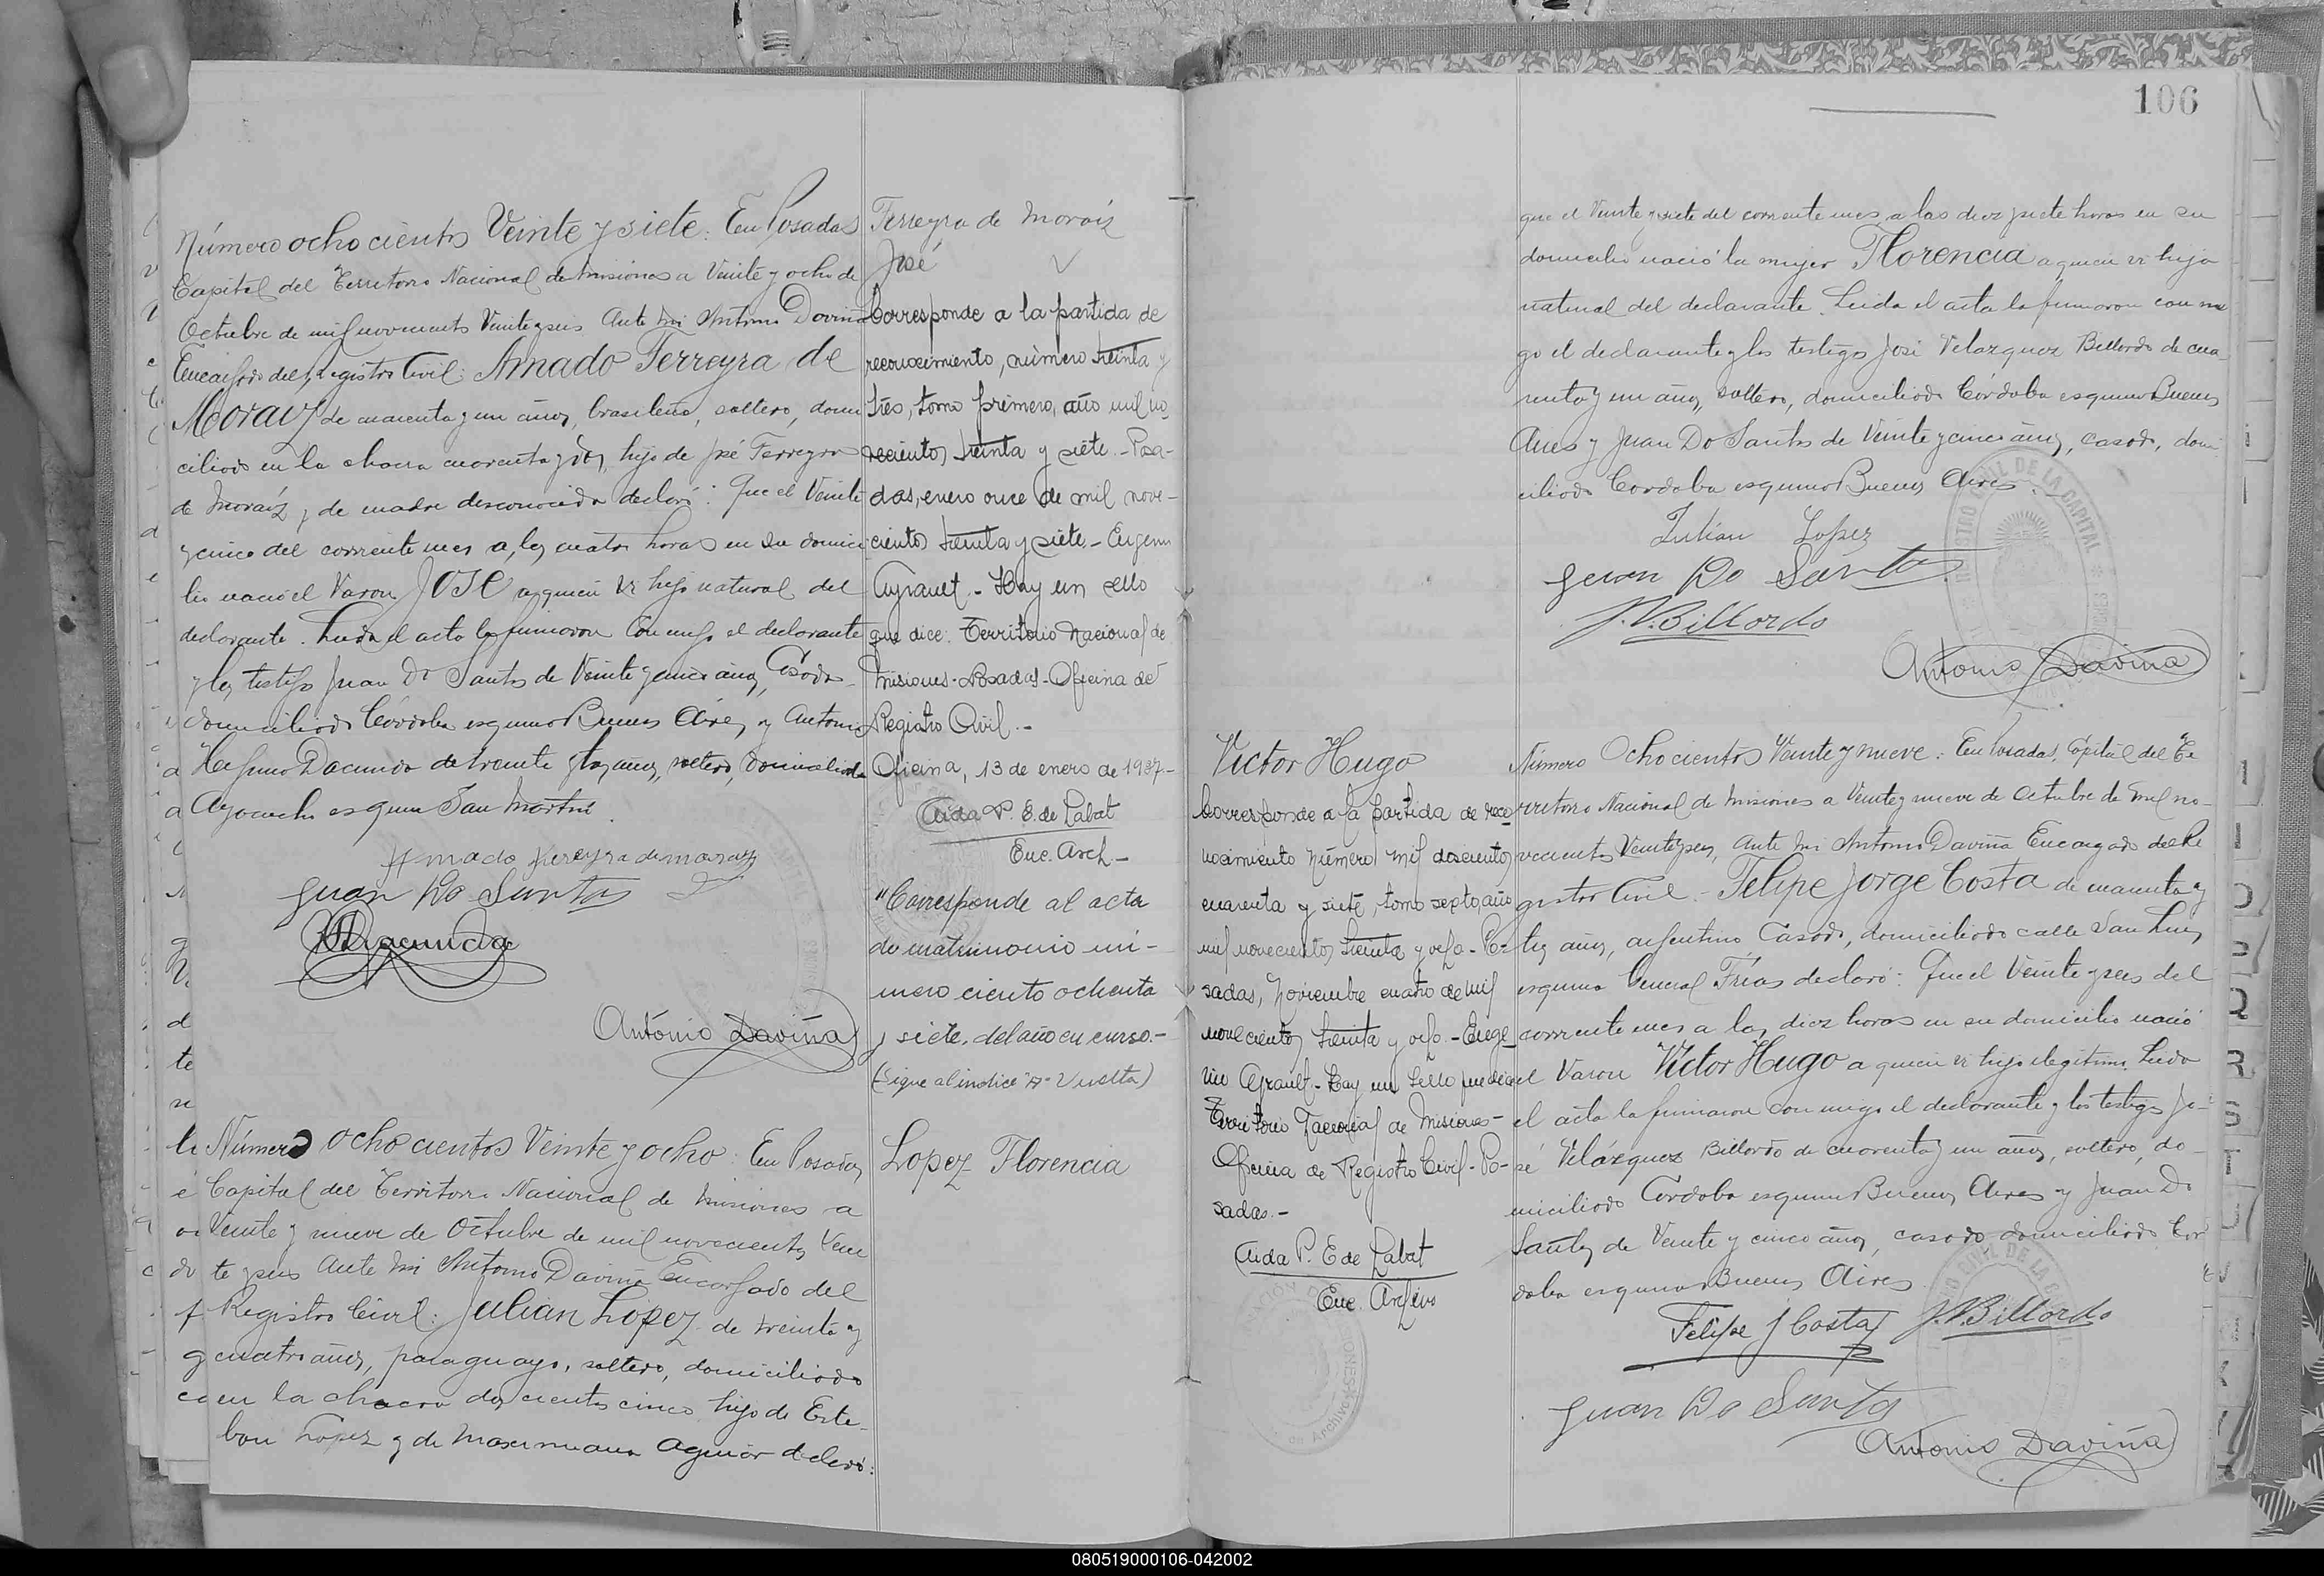 Número ocho cientos Veinte y siete: En Posadas
Capital del Territorio Nacional de Misiones a Veinte y ocho de
Octubre de mil novecientos Veinte y seis Ante mi Antonio Daviña
Encargado del Registro Civil: Amado Ferreyra de
Moraiz de cuarenta y un años, brasileño, soltero, domi
ciliado en la chacra cuarenta y dos, hijo de José Ferreyra
de Moraiz y de madre desconocida declaró: Que el Veinte
y cinco del corriente mes a las cuatro horas en su domici
lio nació el Varon JOSE a quien vi hijo natural del
declarante. Leida el acta la firmaron con migo el declarante
y los testigos Juan Do Santos de Veinte y cinco años, Casado
domiciliado Córdoba esquina Buenos Aires y Antonio
Dacunda de treinta años, soltero, domiciliado
Ayacucho esquina San Martin.
Amado Ferreyra de moraiz
Juan Do Santos
Dacunda
Antonio Daviña
Ferreyra de Moraiz
José
Corresponde a la partida de
reconocimiento, número treinta y
trés, tomo primero, año mil no
vecientos treinta y siete.- Posa-
das, enero once de mil nove-
cientos treinta y siete.- Eugenio
Ayrault.- Hay un sello
que dice: Territorio Nacional de
Misiones-Posadas-Oficina de
Registro Civil.-
Oficina, 13 de enero de 1937.-
Aida P. E. de Labat
Enc. Arch.-
"Corresponde al acta
de matrimonio nú-
mero ciento ochenta
y siete, del año en curso.-
(Sigue al indice "A" Vuelta)
Número ocho cientos Veinte y ocho: En Posadas,
Capital del Territorio Nacional de Misiones a
Veinte y nueve de Octubre de mil novecientos Vein
te y seis Ante mi Antonio Daviña Encargado del
Registro Civil: Julian Lopez de treinta y
cuatro años, paraguayo, soltero, domiciliado
en la chacra dos cientos cinco hijo de Este-
ban Lopez y de Maximiana Aguiar declaró:
Lopez Florencia
106
que el Veinte y siete del corriente mes a las diez y siete horas en su
domicilio nació la mujer Florencia a quien vi hija
natural del declarante. Leida el acta la firmaron con mi
go el declarante y los testigos José Velazquez Billordo de cua
renta y un años, soltero, domiciliado Córdoba esquina Buenos
Aires y Juan Do Santos de Veinte y cinco años, casado, domi
ciliado Cordoba esquina Buenos Aires.
Julian Lopez
Juan Do Santos
J. V. Billordo
Antonio Daviña
Victor Hugo
Corresponde a la partida de reco
nocimiento Número mil doscientos
cuarenta y siete, tomo sexto, año
mil novecientos treinta y ocho - Po
sadas, Noviembre cuatro de mil
novecientos treinta y ocho.- Euge
nio Ayrault.- Hay un sello que dice
Territorio Nacional de Misiones-
Oficina de Registro Civil-Po-
sadas.-
Aida P. E de Labat
Enc. Archivo
Número Ocho cientos Veinte y nueve: En Posadas, Capital del Te
rritorio Nacional de Misiones a Veinte y nueve de Octubre de mil no-
vecientos Veinte y seis, Ante mi Antonio Daviña Encargado del Re
gistro Civil - Felipe Jorge Costa de cuarenta y
tres años, argentino Casado, domiciliado calle San Luis
esquina General Frías declaró: Que el Veinte y seis del
corriente mes a las diez horas en su domicilio nació
el Varon Victor Hugo a quien vi hijo ilegitimo. Leida
el acta la firmaron con migo el declarante y los testigos Jo-
sé Velázquez Billordo de cuarenta y un años, soltero, do-
miciliado Cordoba esquina Buenos Aires y Juan Do
Santos de Veinte y cinco años, casado domiciliado Cor
doba esquina Buenos Aires
Felipe J Costa
J. V. Billordo
Juan Do Santos
Antonio Daviña
080519000106-042002